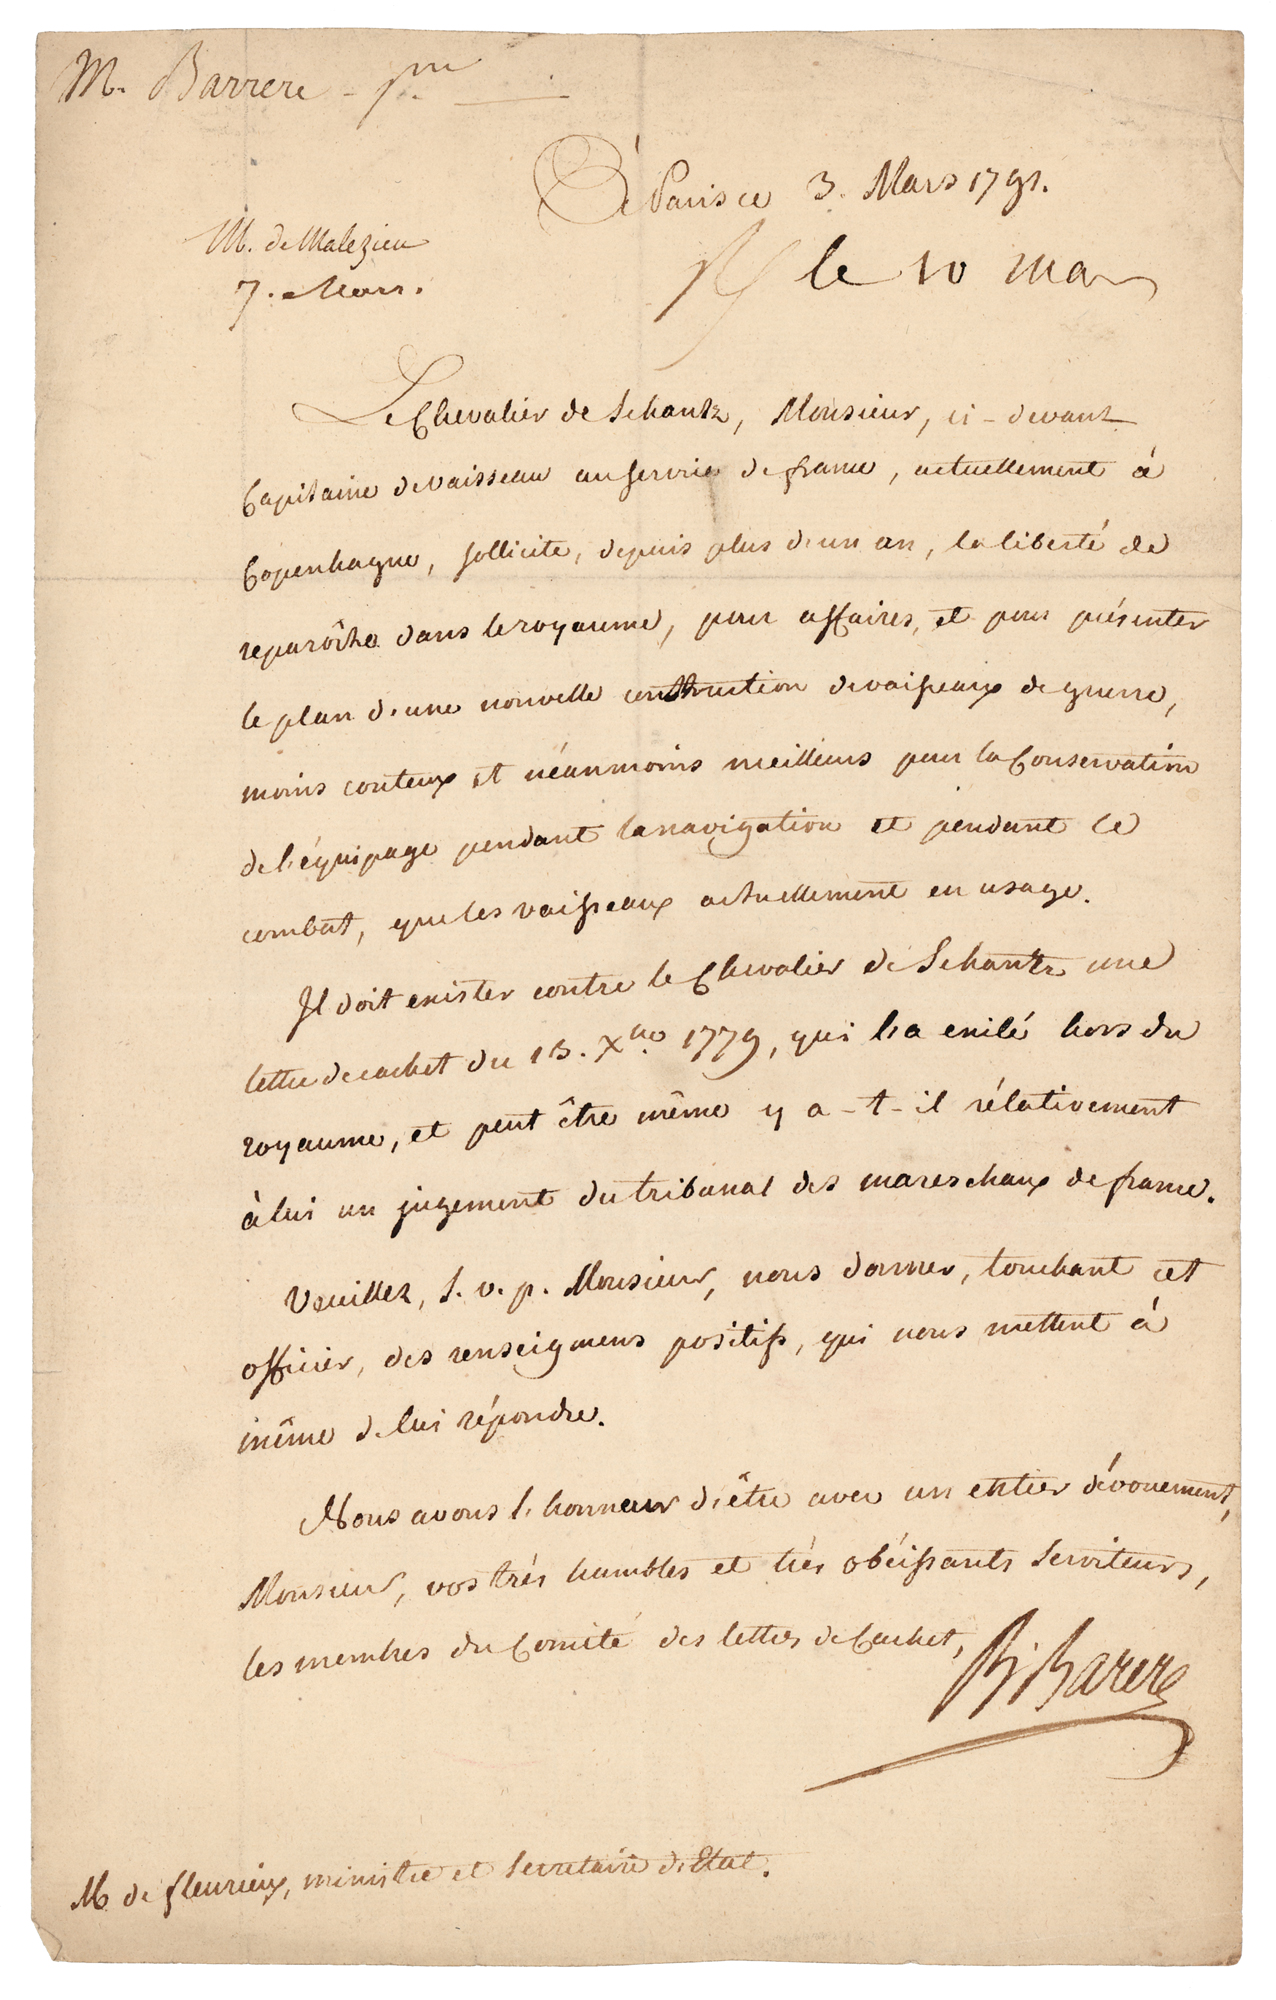 M. Barrere
à Paris ce 3. Mars 1791.
M. de Malezieu
7. Mars.
le 10 mars
Le Chevalier de Schantz, Monsieur, ci-devant
Capitaine de vaisseau au service de france, actuellement à
Copenhague, sollicite, depuis plus d'un an, la liberté de
reparoître dans le royaume, pour affaires, et pour présenter
le plan d'une nouvelle construction de vaisseaux de guerre,
moins couteux et néanmoins meilleurs pour la Conservation
de l'équipage pendant la navigation et pendant le
combat, que les vaisseaux actuellement en usage.
Il doit exister contre le Chevalier de Schantz une
lettre de cachet du 13. Xbre. 1779, qui l'a exilé hors du
royaume, et peut être même y a-t-il rélativement
à lui un jugement du tribunal des mareschaux de france.
Veuillez, s. v. p. Monsieur, nous donner, touchant cet
officier, des renseignmens positifs, qui nous mettent à
même de lui répondre.
Nous avons l'honneur d'être avec un entier dévouement,
Monsieur, vos très humbles et très obéissants serviteurs,
les membres du Comité des lettres de Cachet,
B. Barere
M de fleurieux, ministre et secretaire d'Etat.